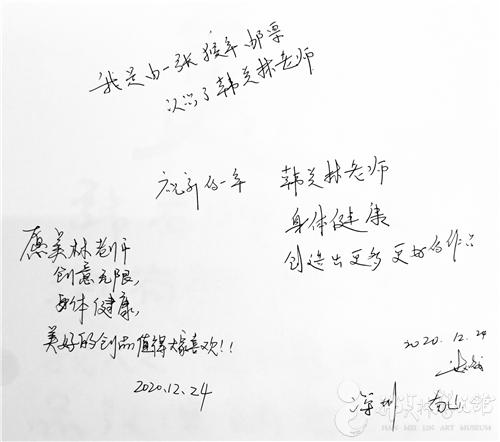 我是由一张猴年邮票
认识了韩美林老师
祝新的一年
韩美林老师
身体健康
创造出更多更好的作品
愿美林老师
创意无限,
身体健康,
美好的创品值得大家喜欢!!
2020.12.24
2020.12.24
深圳 南山
韩美林艺术馆
HAN MEI LIN ART MUSEUM